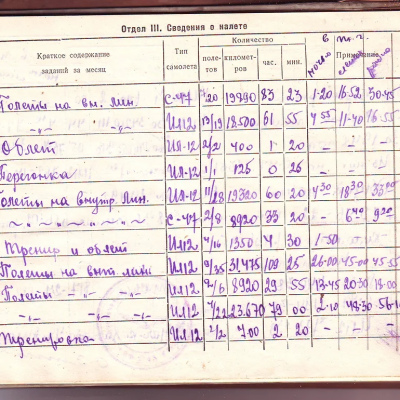 Отдел III. Сведения о налете
Краткое содержание заданий за месяц Тип самолета Количество в т. ч. Примечание
полетов километров час. мин. ночью слепых
Полеты на вн. лин. С-47 /20 19990 83 23 1-20 16-52 30-45
-"- -"- ИЛ12 13/19 18500 61 55 4 55 11-40 16-55
Облет ИЛ-12 2/2 400 1 20 - - -
Перегонка ИЛ-12 1/1 125 0 26 - - -
Полеты на внутр. лин. ИЛ-12 11/28 19320 60 20 4 30 18 30
-"- С-47 2/8 8920 33 20 - 6 40 9 20
Тренир и облет ИЛ12 4/16 1350 4 30 1-50
Полеты на внут. лини ИЛ12 9/35 31475 109 25 26-00 45-00 45-55
Полеты -"- -"- ИЛ12 /6 8920 29 55 13-45 20-30 18-00
-"- -"- ИЛ12 /22 23.670 79 00 2-10 48-30
Тренировка ИЛ12 2/2 700 2 20 - - -